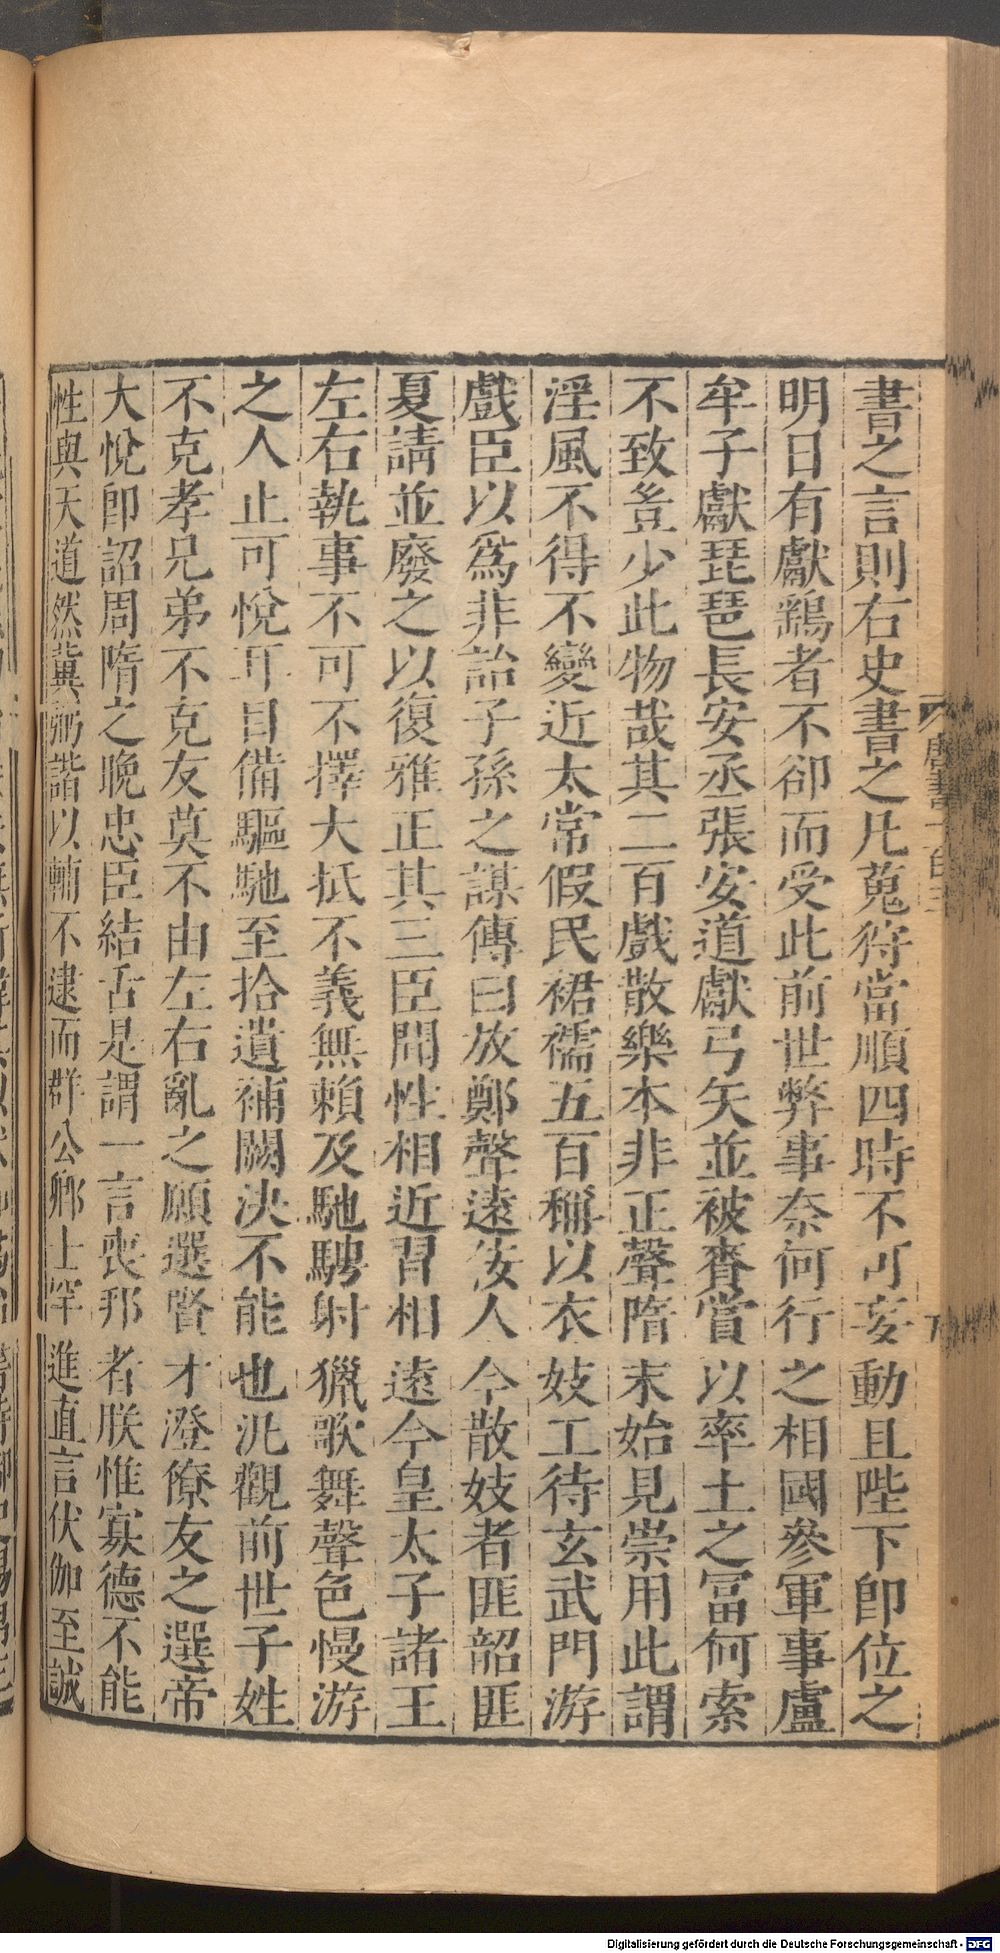 書之言則右史書之凡蒐狩當順四時不可妄動且陛下卽位之
明日有獻鷂者不卻而受此前世弊事奈何行之相國參軍事盧
牟子獻琵琶長安丞張安道獻弓矢並被賚賞以率土之冨何索
不致豈少此物哉其二百戲散樂本非正聲隋末始見崇用此謂
淫風不得不變近太常假民裙襦五百稱以衣妓工待玄武門游
戲臣以爲非詒子孫之謀傳曰放鄭聲遠佞人今散妓者匪韶匪
夏請並廢之以復雅正其三臣聞性相近習相遠今皇太子諸王
左右執事不可不擇大抵不義無賴及馳騁射獵歌舞聲色慢游
之人止可悅耳目備驅馳至拾遺補闕決不能也汎觀前世子姓
不克孝兄弟不克友莫不由左右亂之願選賢才澄僚友之選帝
大悅卽詔周隋之晚忠臣結舌是謂一言喪邦者朕惟寡德不能
性與天道然冀弼諧以輔不逮而群公卿士罕進直言伏伽至誠
唐書一百三
Digitalisierung gefördert durch die Deutsche Forschungsgemeinschaft - DFG